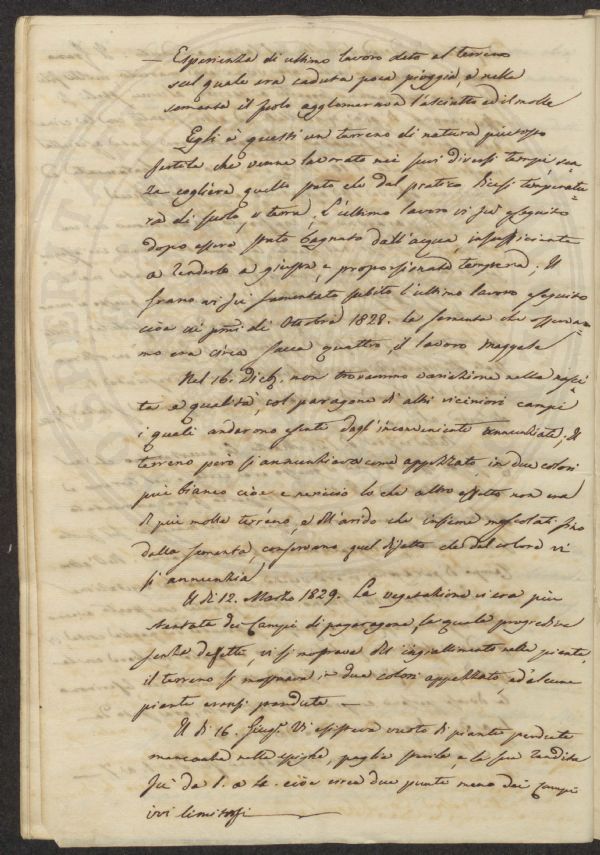 — Esperienza di ultimo lavoro dato al terreno
sul quale era caduta poca pioggia, e nelle
semente il suolo agglomerava l'asciutto ed il molle
Egli è questi un terreno di natura piuttosto
fertile che venne lavorato nei suoi diversi tempi, sen=
za cogliere quello stato che dal pratico dicesi temperatu=
ra di suolo, o terra; L'ultimo lavoro vi fù eseguito
dopo essere stato bagnato dall'acqua, insufficiente
a renderlo a giusta, e proporzionata tempera; Il
grano vi fù sementato subito l'ultimo lavoro eseguito
cioè ai primi di Ottobre 1828. la sementa che osserva=
mo era circa sacca quattro, il lavoro
Nel 16. Dicb. non trovammo variazione nella nasci
ta e qualità, col paragone di altri viciniori campi
i quali andarono esente dagl'inconveniente annunziate; Il
terreno però si annunziava come appezzato in due colori
più bianco cioè e rossiccio lo che altro effetto non era
di più molle terreno, e dell'arido che insieme mescolati fino
dalla sementa, conservano quel difetto che dal colore vi
si annunzia
Il dì 12. Marzo 1829. La vegetazione vi era più
stentata dei Campi di paragone, la quale progrediva
senza difetto, vi si mostrava del ingiallimento nelle piante,
il terreno si mostrava in due colori appezzato, ed alcune
piante eransi perdute —
Il dì 16. Giug.º Vi esisteva vuoto di piante perdute
mancanza nelle spighe, paglia sottile e la sua rendita
fù da 1. a 4. cioè circa due punti meno dei Campi
ivi limitrofi —